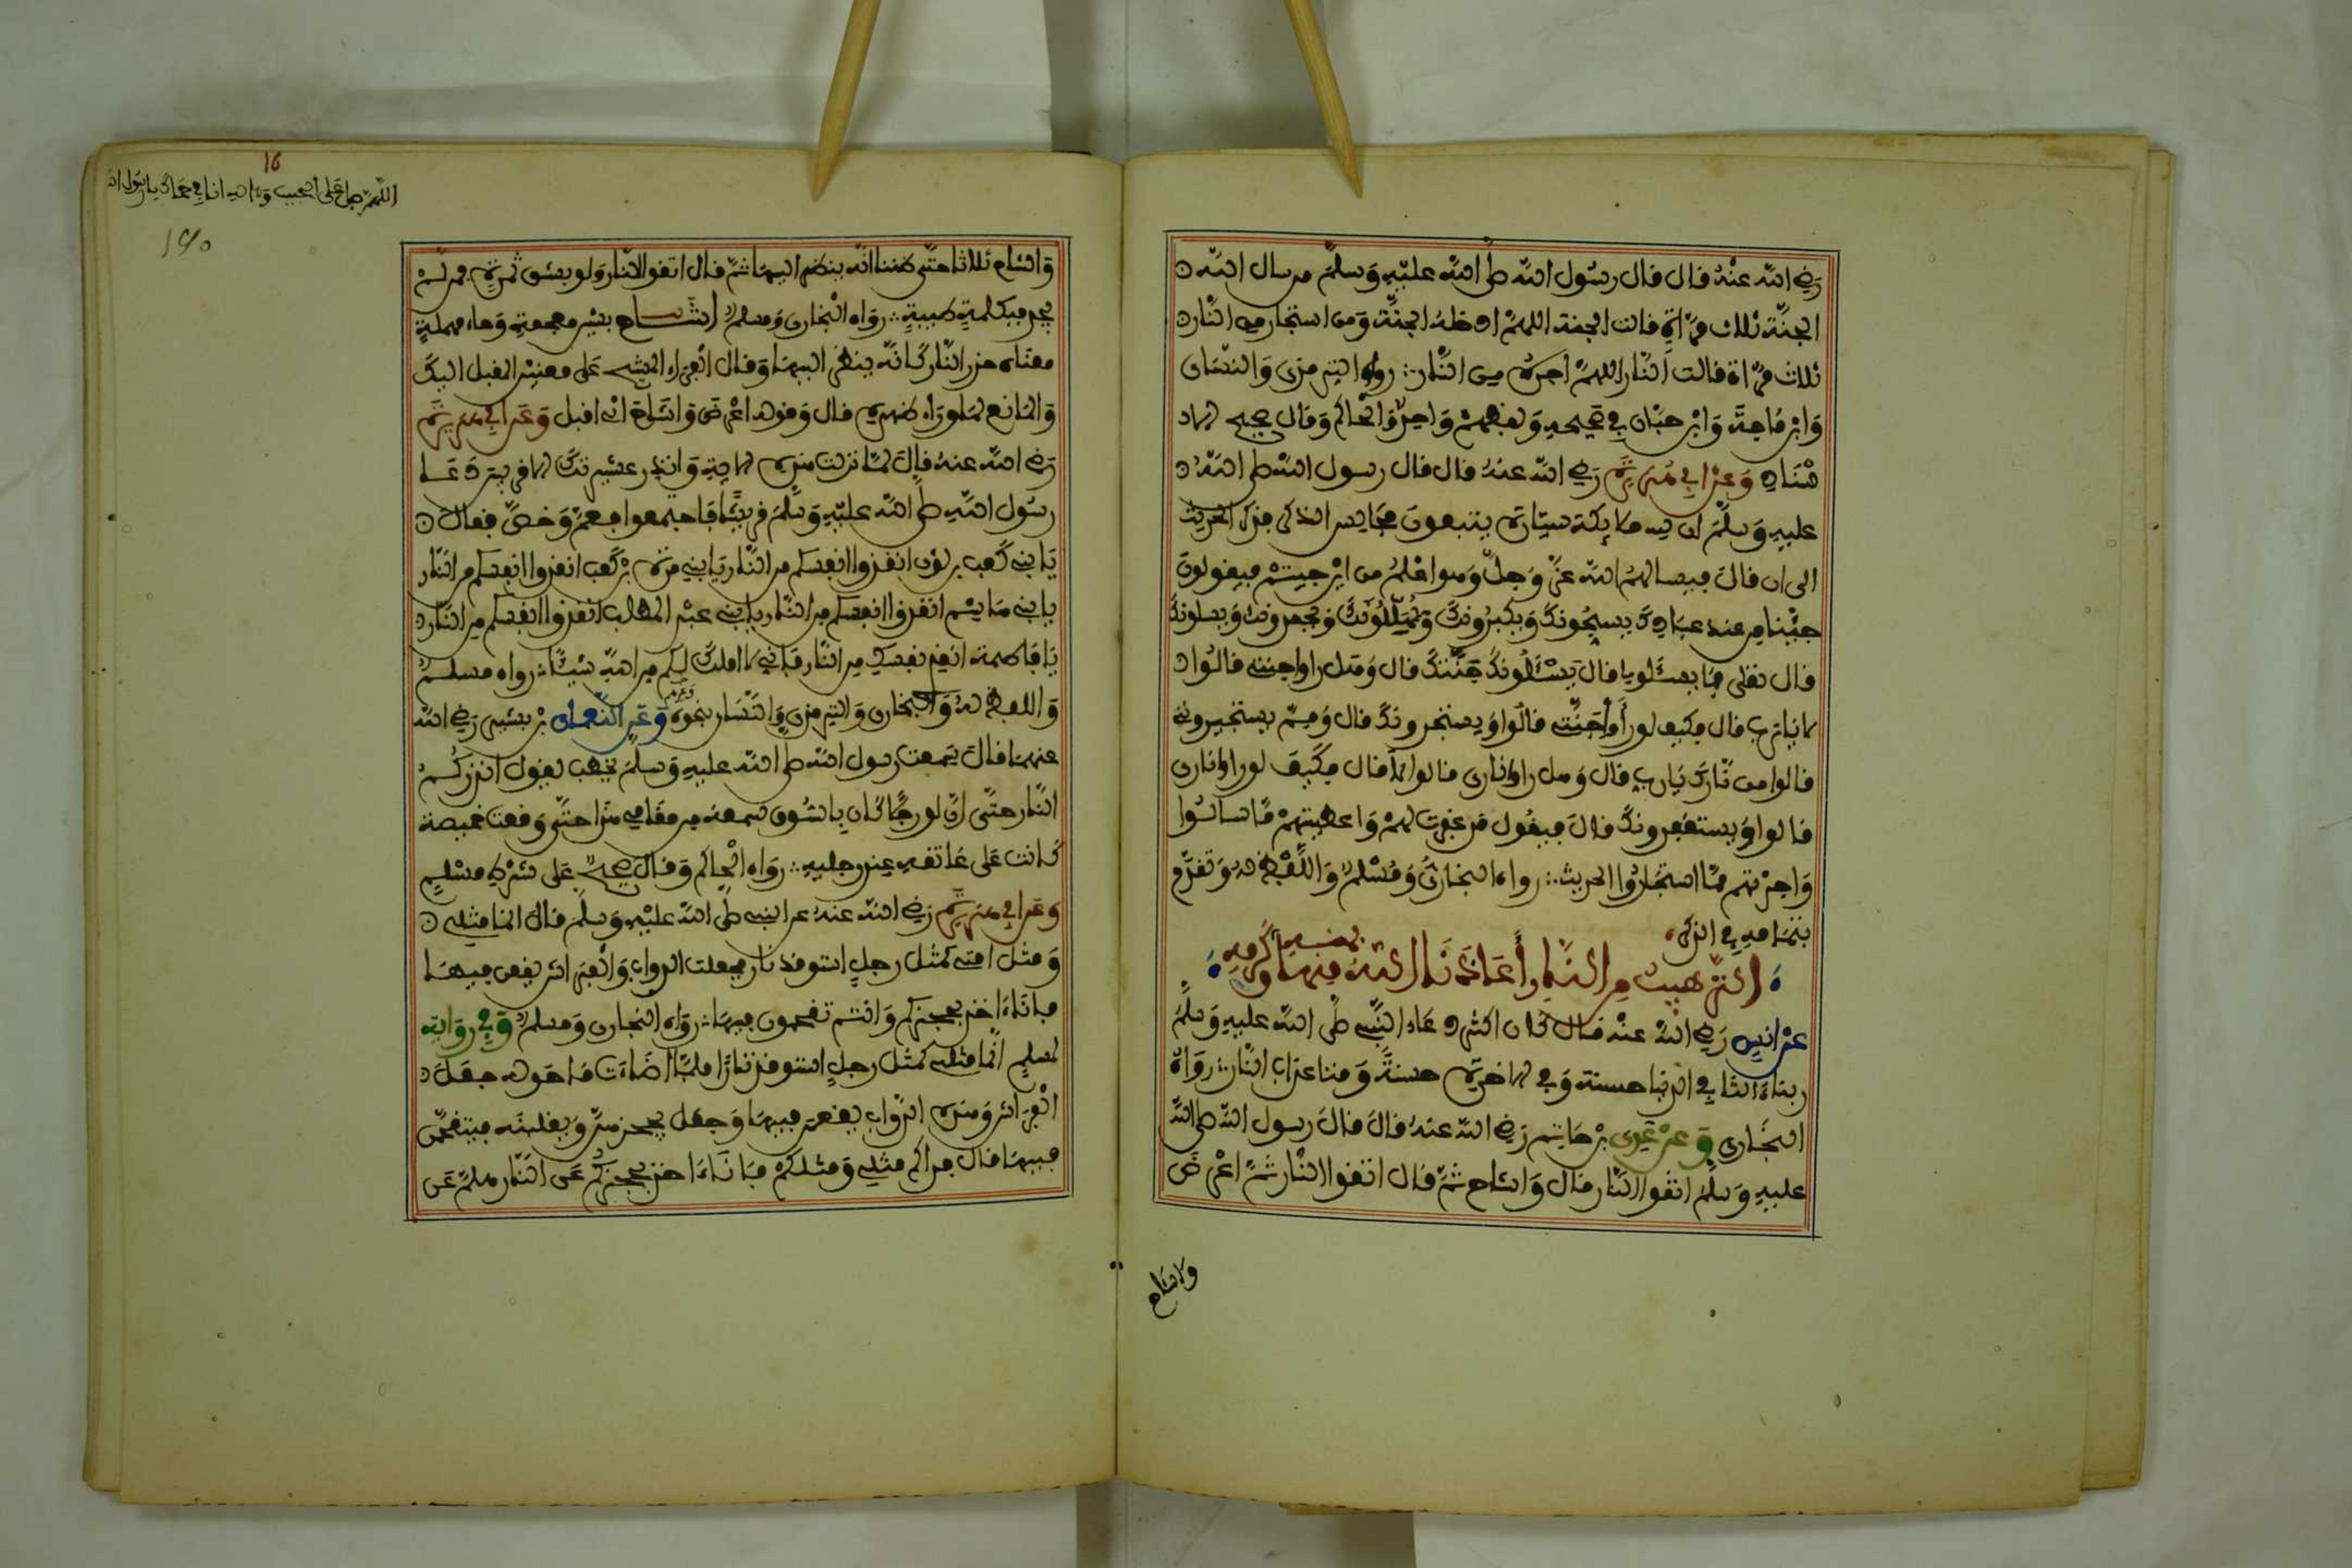 رضي الله عنه قال قال رسول الله صلى الله عليه وسلم من سال الله
الجنة ثلاث مرات قالت الجنة اللهم ادخله الجنة ومن استجار من النار
ثلاث مرات قالت النار اللهم اجره من النار رواه الترمذي والنسائي
وابن ماجة وابن حبان في صحيحه ولفظهم واحد والحاكم وقال صحيح الاسـ
ـناد وعن ابي هريرة رضي الله عنه قال قال رسول الله صلى الله
عليه وسلم ان لله ملائكة سيارة يتبعون مجالس الذكر فذكر الحديث
الى ان قال فيسالهم الله عز وجل وهو اعلم من اين جيتم فيقولون
جئنا من عند عبادك يسبحونك ويكبرونك ويهللونك ويحمدونك ويسلونك
قال فقال فما يسئلوني قال يسئلونك جنتك قال وهل راوا جنتي قالوا
لا يا رب قال فكيف لو رأوا جنتي قالوا ويستجيرونك قال ومم يستجيروني
قالوا من نارك يا رب قال وهل راوا ناري قالوا لا قال فكيف لو راوا ناري
قالوا ويستغفرونك قال فيقول قد غفرت لهم واعطيتهم ما سالوا
واجرتهم مما استجاروا الحديث رواه البخاري ومسلم واللفظ له وتقدم
بتمامه في الذكر
الترهيب من النار أعاذنا الله منها بفضله وكرمه
عن انس رضي الله عنه قال كان اكثر دعاء النبي صلى الله عليه وسلم
ربنا ءاتنا في الدنيا حسنة وفي الاخرة حسنة وقنا عذاب النار رواه
البخاري وعن عدي بن حاتم رضي الله عنه قال قال رسول الله صلى الله
عليه وسلم اتقوا النار قال واشاح ثم قال اتقوا النار ثم اعرض
واشاح
16
اللهم صل على الحبيب
واشاح ثلاثا حتى ظننا انه ينظر اليها ثم قال اتقوا النار ولو بشق تمرة فمن لم
يجد فبكلمة طيبة رواه البخاري ومسلم اشاح بشين معجمة وحاء مهملة
معناه حذر النار كانه ينظر اليها وقال الفراء المشيح على معنيين المقبل اليك
والمانع لما وراء ظهره قال وقوله اعرض واشاح اي اقبل وعن ابي هريرة
رضي الله عنه قال لما نزلت هذه الاية وانذر عشيرتك الاقربين دعا
رسول الله صلى الله عليه وسلم قريشا فاجتمعوا فعم وخص فقال
يا بني كعب بن لؤي انقذوا انفسكم من النار يا بني مرة بن كعب انقذوا انفسكم من النار
يا بني هاشم انقذوا انفسكم من النار يا بني عبد المطلب انقذوا انفسكم من النار
يا فاطمة انقذي نفسك من النار فاني لا املك لكم من الله شيئا رواه مسلم
واللفظ له والبخاري والترمذي والنسائي بنحوه وعن النعمان بن بشير رضي الله
عنهما قال سمعت رسول الله صلى الله عليه وسلم يخطب يقول انذركم
النار حتى ان لو رجلا كان بالسوق لسمعه من مقامي هذا حتى وقعت خميصة
كانت على عاتقه عند رجليه رواه الحاكم وقال صحيح على شرط مسلم
وعن ابي هريرة رضي الله عنه عن النبي صلى الله عليه وسلم قال انما مثلي
ومثل امتي كمثل رجل استوقد نارا فجعلت الدواب والفراش يقعن فيها
فانا ءاخذ بحجزكم وانتم تقحمون فيها رواه البخاري ومسلم وفي رواية
لمسلم انما مثلي كمثل رجل استوقد نارا فلما اضاءت ما حوله جعل
الفراش وهذه الدواب يقعن فيها وجعل يحجزهن ويغلبنه فيتقحمن
فيها قال فذلكم مثلي ومثلكم فانا ءاخذ بحجزكم عن النار هلم عن